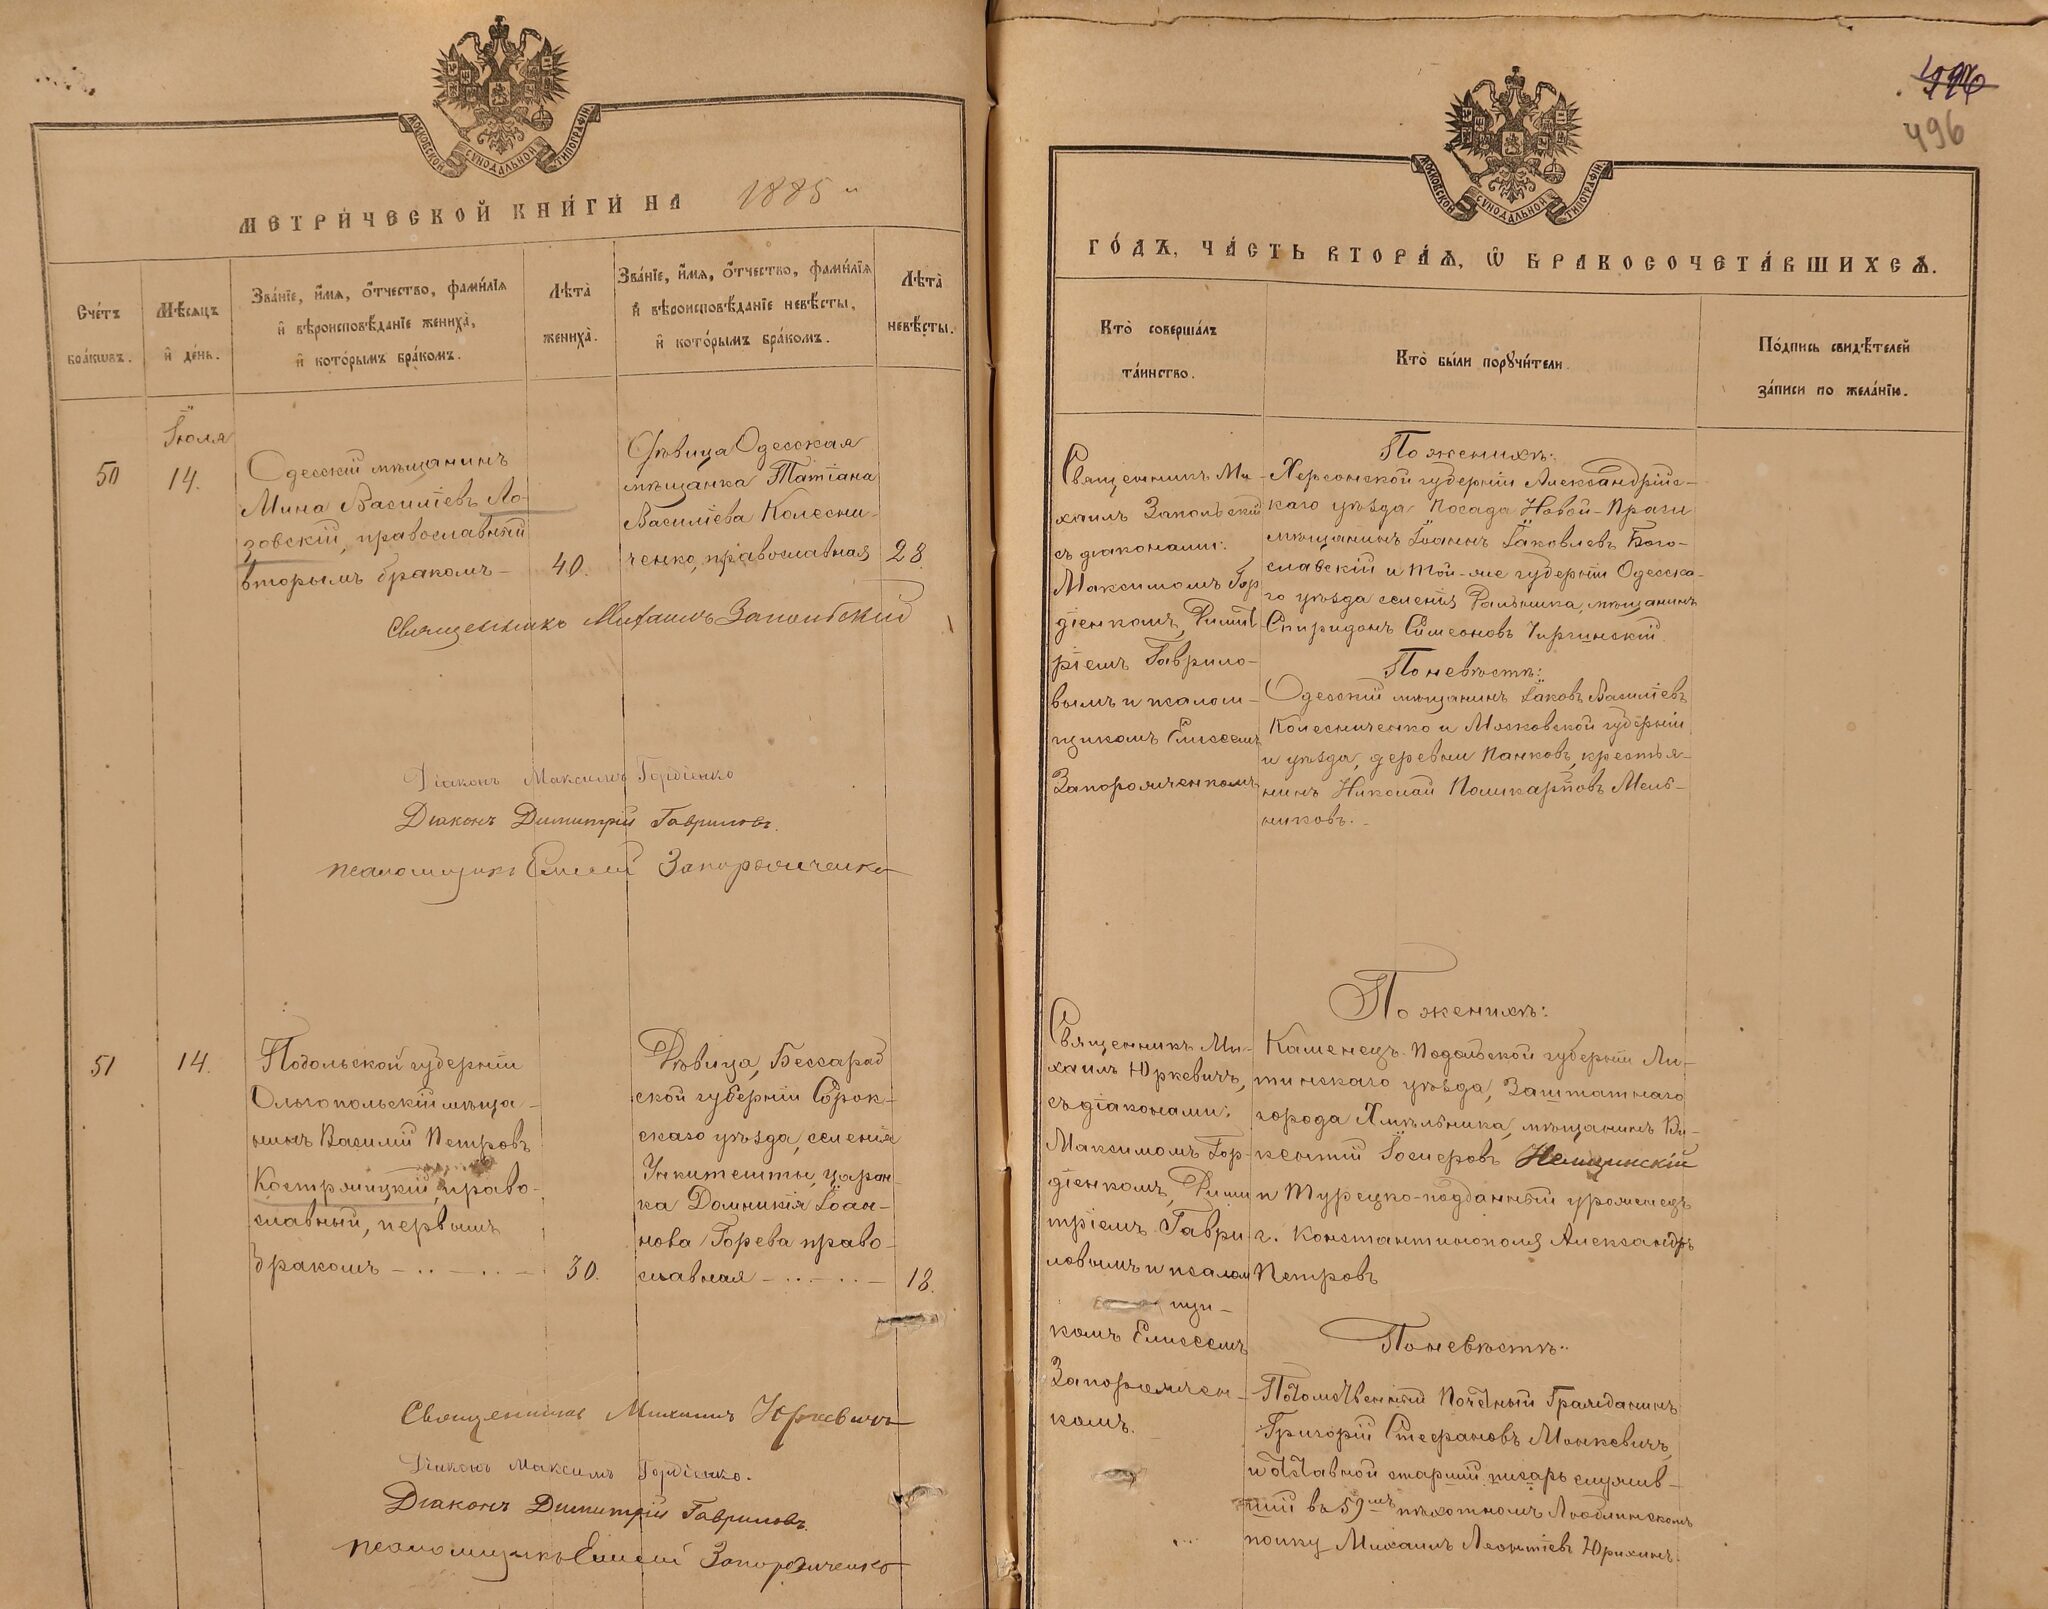 МОСКОВСКОЙ СУНОДАЛЬНОЙ ТИПОГРАФІИ.
МЕТРИ́ЧЕСКОЙ КНИ́ГИ НА 1885 й
Счéтъ
брáкωвъ.
Мѣ́сяцъ
и҆ дéнь.
Звáніе, и҆́мя, ѻ҆́тчество, фами́лія
и҆ вѣроисповѣ́данїе женихà,
и҆ котóрымъ брáкомъ.
Лѣтà
женихà.
Звáніе, и҆́мя, ѻ҆́тчество, фами́лія
и҆ вѣроисповѣ́данїе невѣ́сты,
и҆ котóрымъ брáкомъ.
Лѣтà
невѣ́сты.
50
Іюля
14.
Одесскій мѣщанинъ
Мина Василіевъ Ло-
зовскій, православный
вторымъ бракомъ –
40.
Дѣвица Одесская
мѣщанка Татіана
Василіева Колесни-
ченко, православная
28.
Священникъ Михаилъ Запольскій
Діаконъ Максимъ Гордіенко
Діаконъ Димитрій Гавриловъ.
псаломщикъ Елисей Запорожченко
51
14.
Подольской губерніи
Ольгопольскій мѣща-
нинъ Василій Петровъ
Костряницкій право-
славный, первымъ
бракомъ – .. – .. –
30.
Дѣвица, Бессараб
ской губерніи Сорок-
скаго уѣзда, селенія
Ункитешты, царан-
ка Домникія Іоан-
нова Горева право-
славная – .. – .. –
18.
Священникъ Михаилъ Юркевичъ
Діаконъ Максимъ Гордіенко.
Діаконъ Димитрій Гавриловъ.
псаломщикъ Елисей Запорожченко
496
496
МОСКОВСКОЙ СУНОДАЛЬНОЙ ТИПОГРАФІИ.
ГÓДЪ, ЧÁСТЬ ВТОРÁЯ, Ѡ҆ БРАКОСОЧЕТÁВШИХСЯ.
Ктò совершáлъ
тáинство.
Ктò бы́ли порꙋчи́тели.
Пóдпись свидѣ́телей
зáписи по желáнїю.
Священникъ Ми-
хаилъ Запольскій
съ діаконами:
Максимомъ Гор
діенкомъ, Димит
ріемъ Гаврило-
вымъ и псалом-
щикомъ Елисеемъ
Запорожченкомъ
По женихѣ:
Херсонской губерніи Александрійс-
каго уѣзда Посада Новой-Праги
мѣщанинъ Іоаннъ Іаковлевъ Бого-
славскій и той-же губерніи Одесска-
го уѣзда селенія Ряльника, мѣщанинъ
Спиридонъ Симеоновъ Чиргинскій.
По невѣстѣ:
Одесскій мѣщанинъ Іаковъ Василіевъ
Колесниченко и Московской губерніи
и уѣзда, деревни Панковъ, крестья-
нинъ Николай Поликарповъ Мель-
никовъ. –
Священникъ Ми-
хаилъ Юркевичъ,
съ діаконами:
Максимомъ Гор-
діенкомъ, Дими
тріемъ Гаври
ловымъ и псалом
щи-
комъ Елисеемъ
Запорожчен-
комъ.
По женихѣ:
Каменецъ-Подольской губерніи Ли-
тинскаго уѣзда, Заштатнаго
города Хмѣльника, мѣщанинъ Ви-
кентій Іосифовъ Немщинскій
и Турецко-подданный уроженецъ
г. Константинополя Александръ
Петровъ
По невѣстѣ:
Потомственный Почетный Гражданинъ
Григорій Стефановъ Монкевичъ,
и отставной старшій писарь служив-
шій въ 59мъ пѣхотномъ Люблинскомъ
полку Михаилъ Леонтіевъ Юрихинъ.